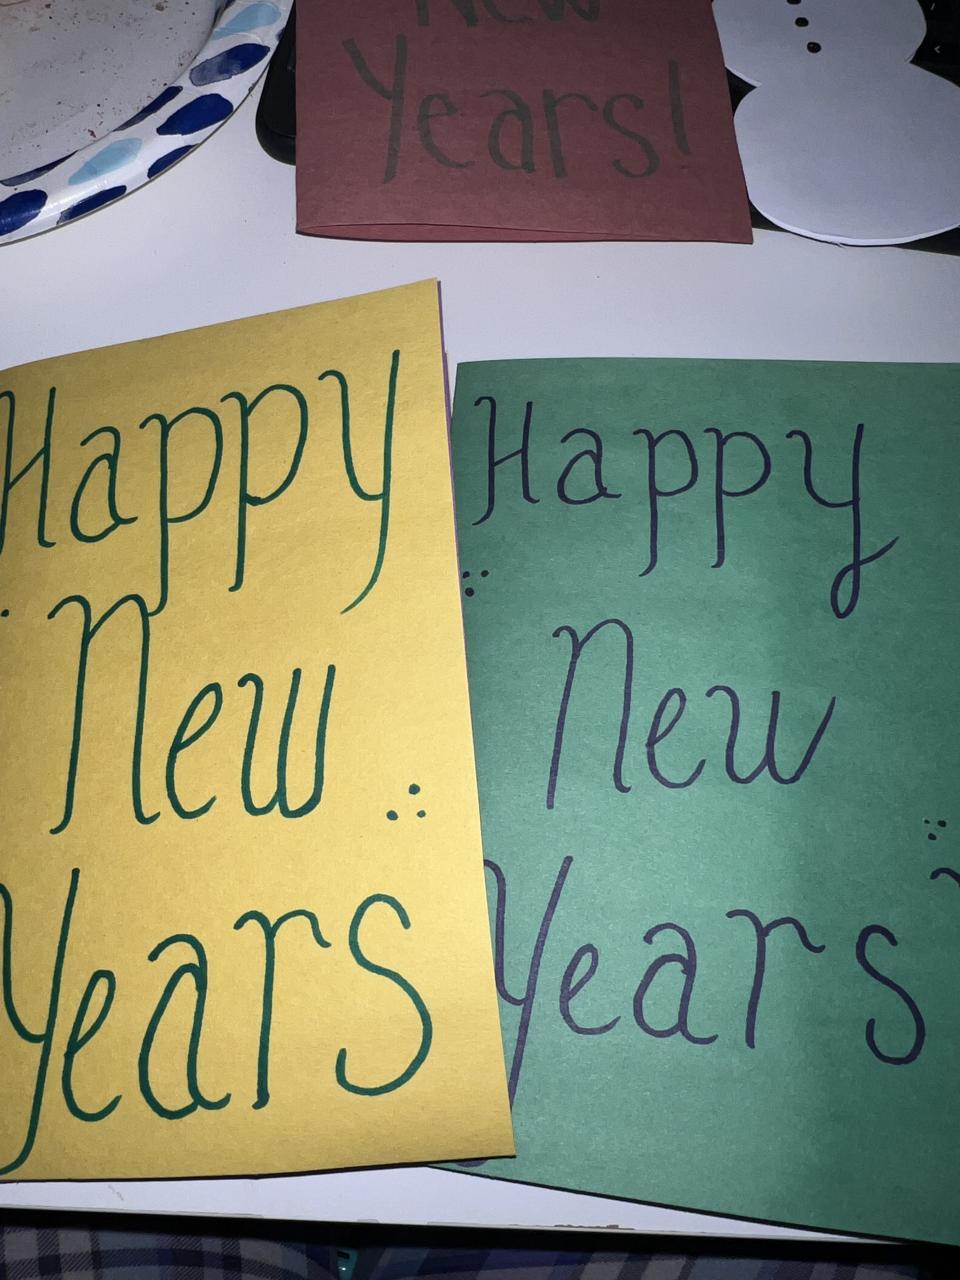 New
Years!
Happy
New
Years
Happy
New
Years